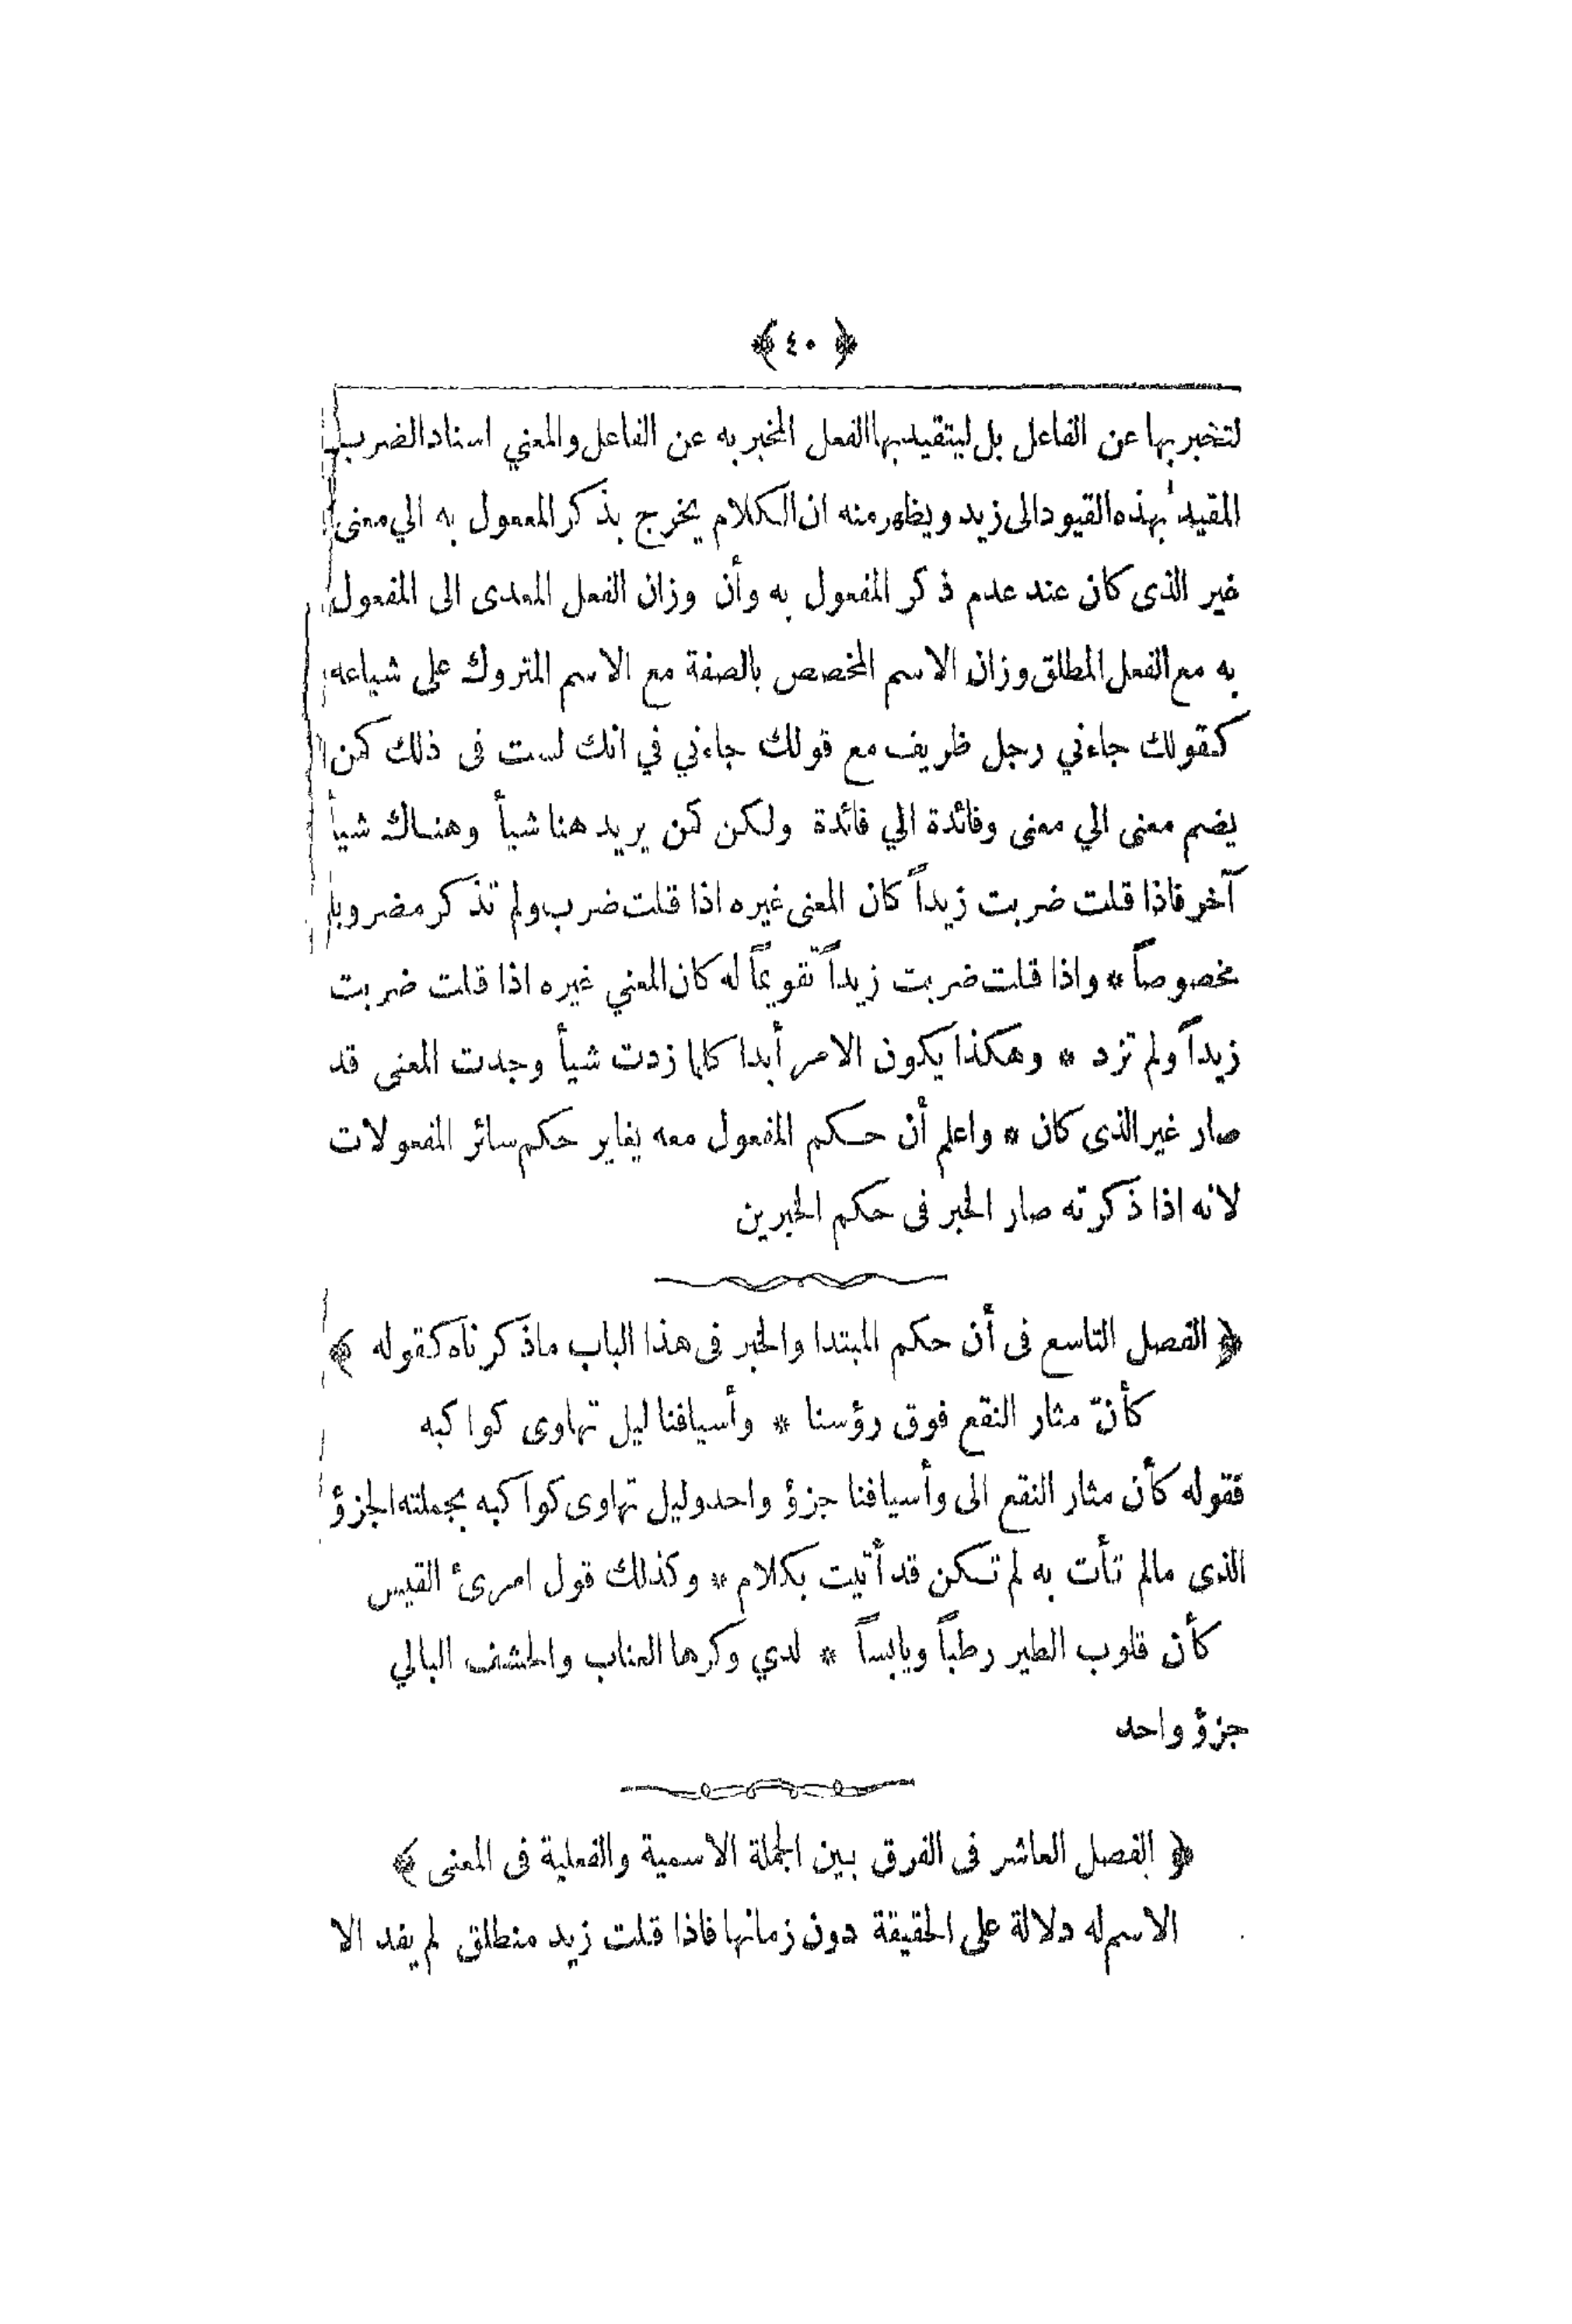 ﴿ ٤٠ ﴾
لتخبر بها عن الفاعل بل ليتقيد بها الفعل المخبر به عن الفاعل والمعني اسناد الضرب
المقيد بهذه القيود الى زيد ويظهر منه ان الكلام يخرج بذكر المعمول به الي معنى
غير الذى كان عند عدم ذكر المفعول به وأن وزان الفعل المعدى الى المفعول
به مع الفعل المطلق وزان الاسم المخصص بالصفة مع الاسم المتروك على شياعه
كقولك جاءني رجل ظريف مع قولك جاءني في انك لست فى ذلك كمن
يضم معنى الي معنى وفائدة الي فائدة ولكن كمن يريد هنا شيأ وهناك شيأ
آخر فاذا قلت ضربت زيداً كان المعنى غيره اذا قلت ضرب ولم تذكر مضروبا
مخصوصاً * واذا قلت ضربت زيداً تقويماً له كان المعني غيره اذا قلت ضربت
زيداً ولم تزد * وهكذا يكون الامر أبدا كلما زدت شيأ وجدت المعنى قد
صار غير الذى كان * واعلم أن حكم المفعول معه يغاير حكم سائر المفعولات
لانه اذا ذكرته صار الخبر فى حكم الخبرين
﴿ الفصل التاسع فى أن حكم المبتدا والخبر فى هذا الباب ماذكرناه كقوله ﴾
كأنّ مثار النقع فوق رؤسنا * وأسيافنا ليل تهاوى كواكبه
فقوله كأن مثار النقع الى وأسيافنا جزؤ واحد وليل تهاوى كواكبه بجملته الجزؤ
الذى مالم تأت به لم تكن قد أتيت بكلام * وكذلك قول امرئ القيس
كأن قلوب الطير رطباً ويابساً * لدي وكرها العناب والحشف البالي
جزؤ واحد
﴿ الفصل العاشر فى الفرق بين الجملة الاسمية والفعلية فى المعنى ﴾
الاسم له دلالة على الحقيقة دون زمانها فاذا قلت زيد منطلق لم يفد الا